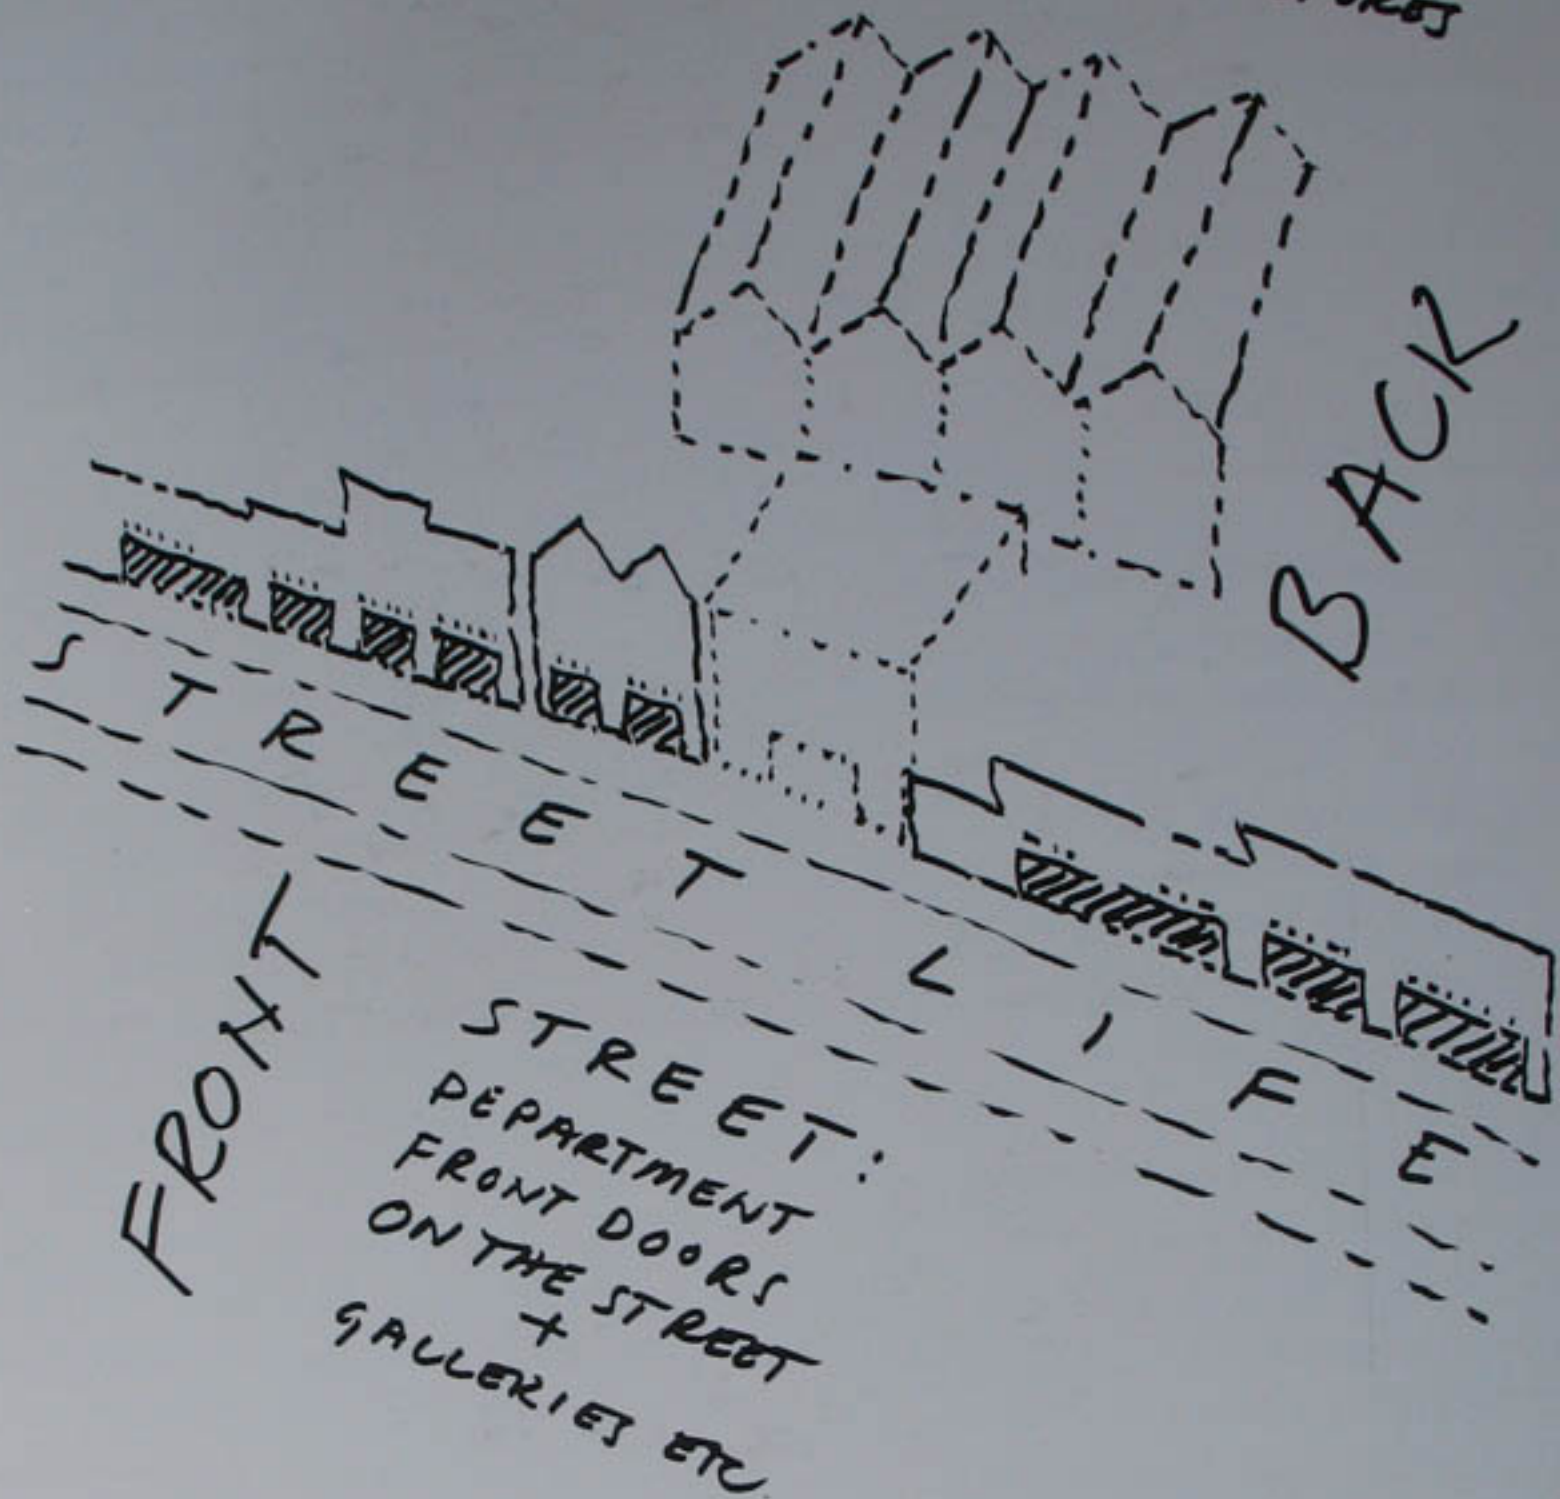 BACK
STREET LIFE
FRONT
STREET:
DEPARTMENT
FRONT DOORS
ON THE STREET
+
GALLERIES ETC.